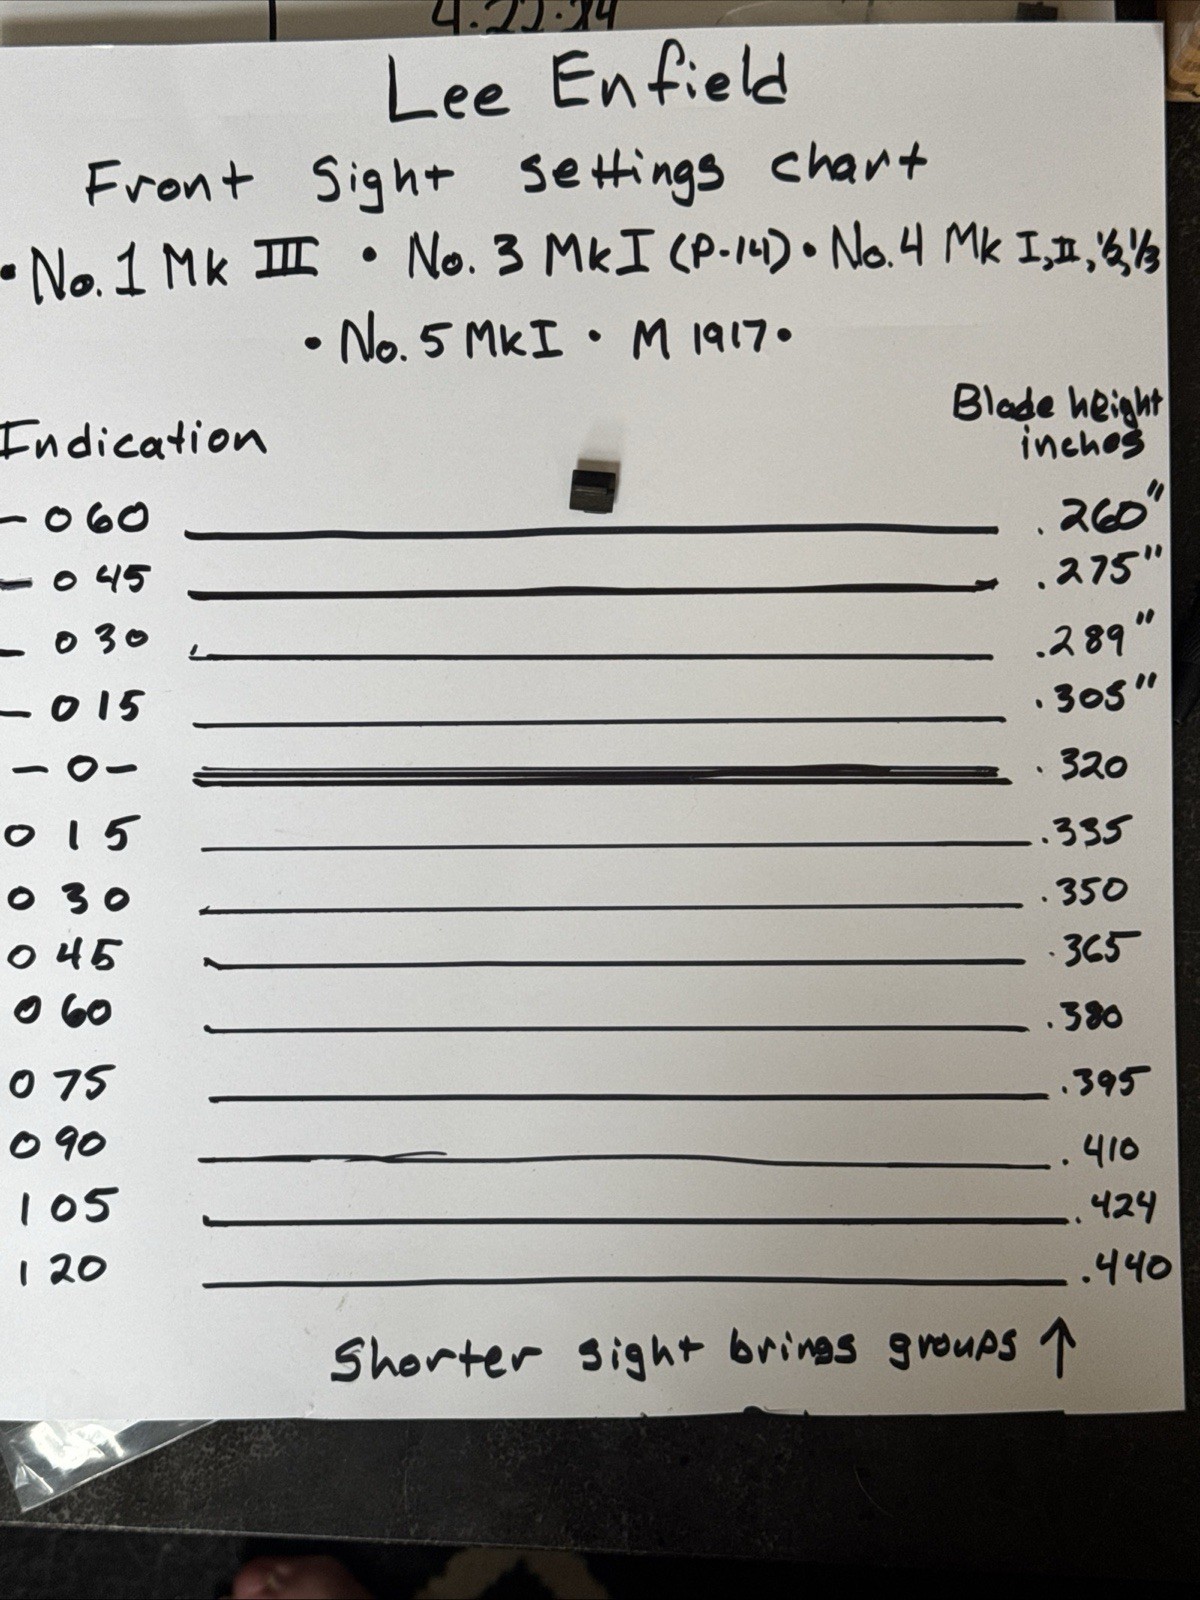 4.22.24
Lee Enfield
Front Sight settings chart
• No. 1 Mk III • No. 3 Mk I (P-14) • No. 4 Mk I, II, 1/2, 1/3
• No. 5 Mk I • M 1917 •
Indication Blade height inches
- 060 .260"
- 045 .275"
- 030 .289"
- 015 .305"
- 0 - .320
015 .335
030 .350
045 .365
060 .380
075 .395
090 .410
105 .424
120 .440
Shorter sight brings groups ↑